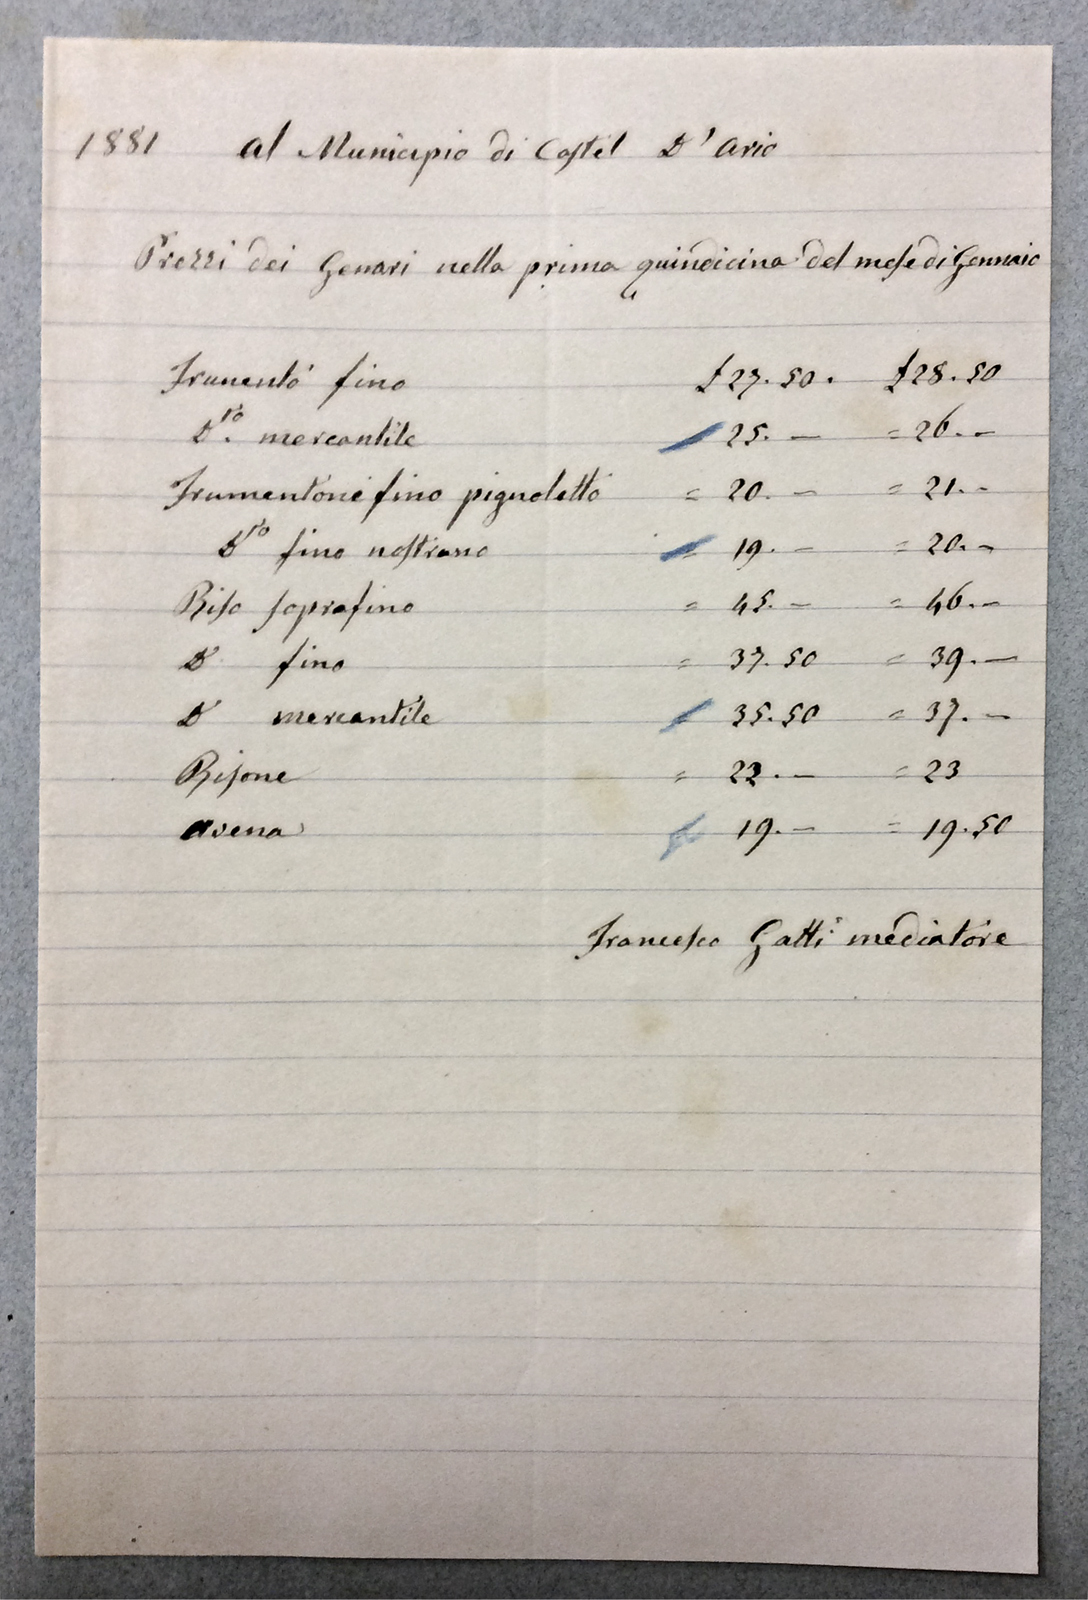 1881 al Municipio di Castel D'ario
Prezzi dei Genari nella prima quindicina del mese di Gennaio
Frumento fino £ 27.50. £ 28.50
D.ro mercantile 25. — = 26. —
Frumentone fino pignoletto = 20. — = 21. —
D.ro fino nostrano = 19. — = 20. —
Riso soprafino = 45. — = 46. —
D fino = 37.50 = 39. —
D mercantile = 35.50 = 37. —
Risone = 22. — = 23
avena = 19. — = 19.50
Francesco Gatti mediatore